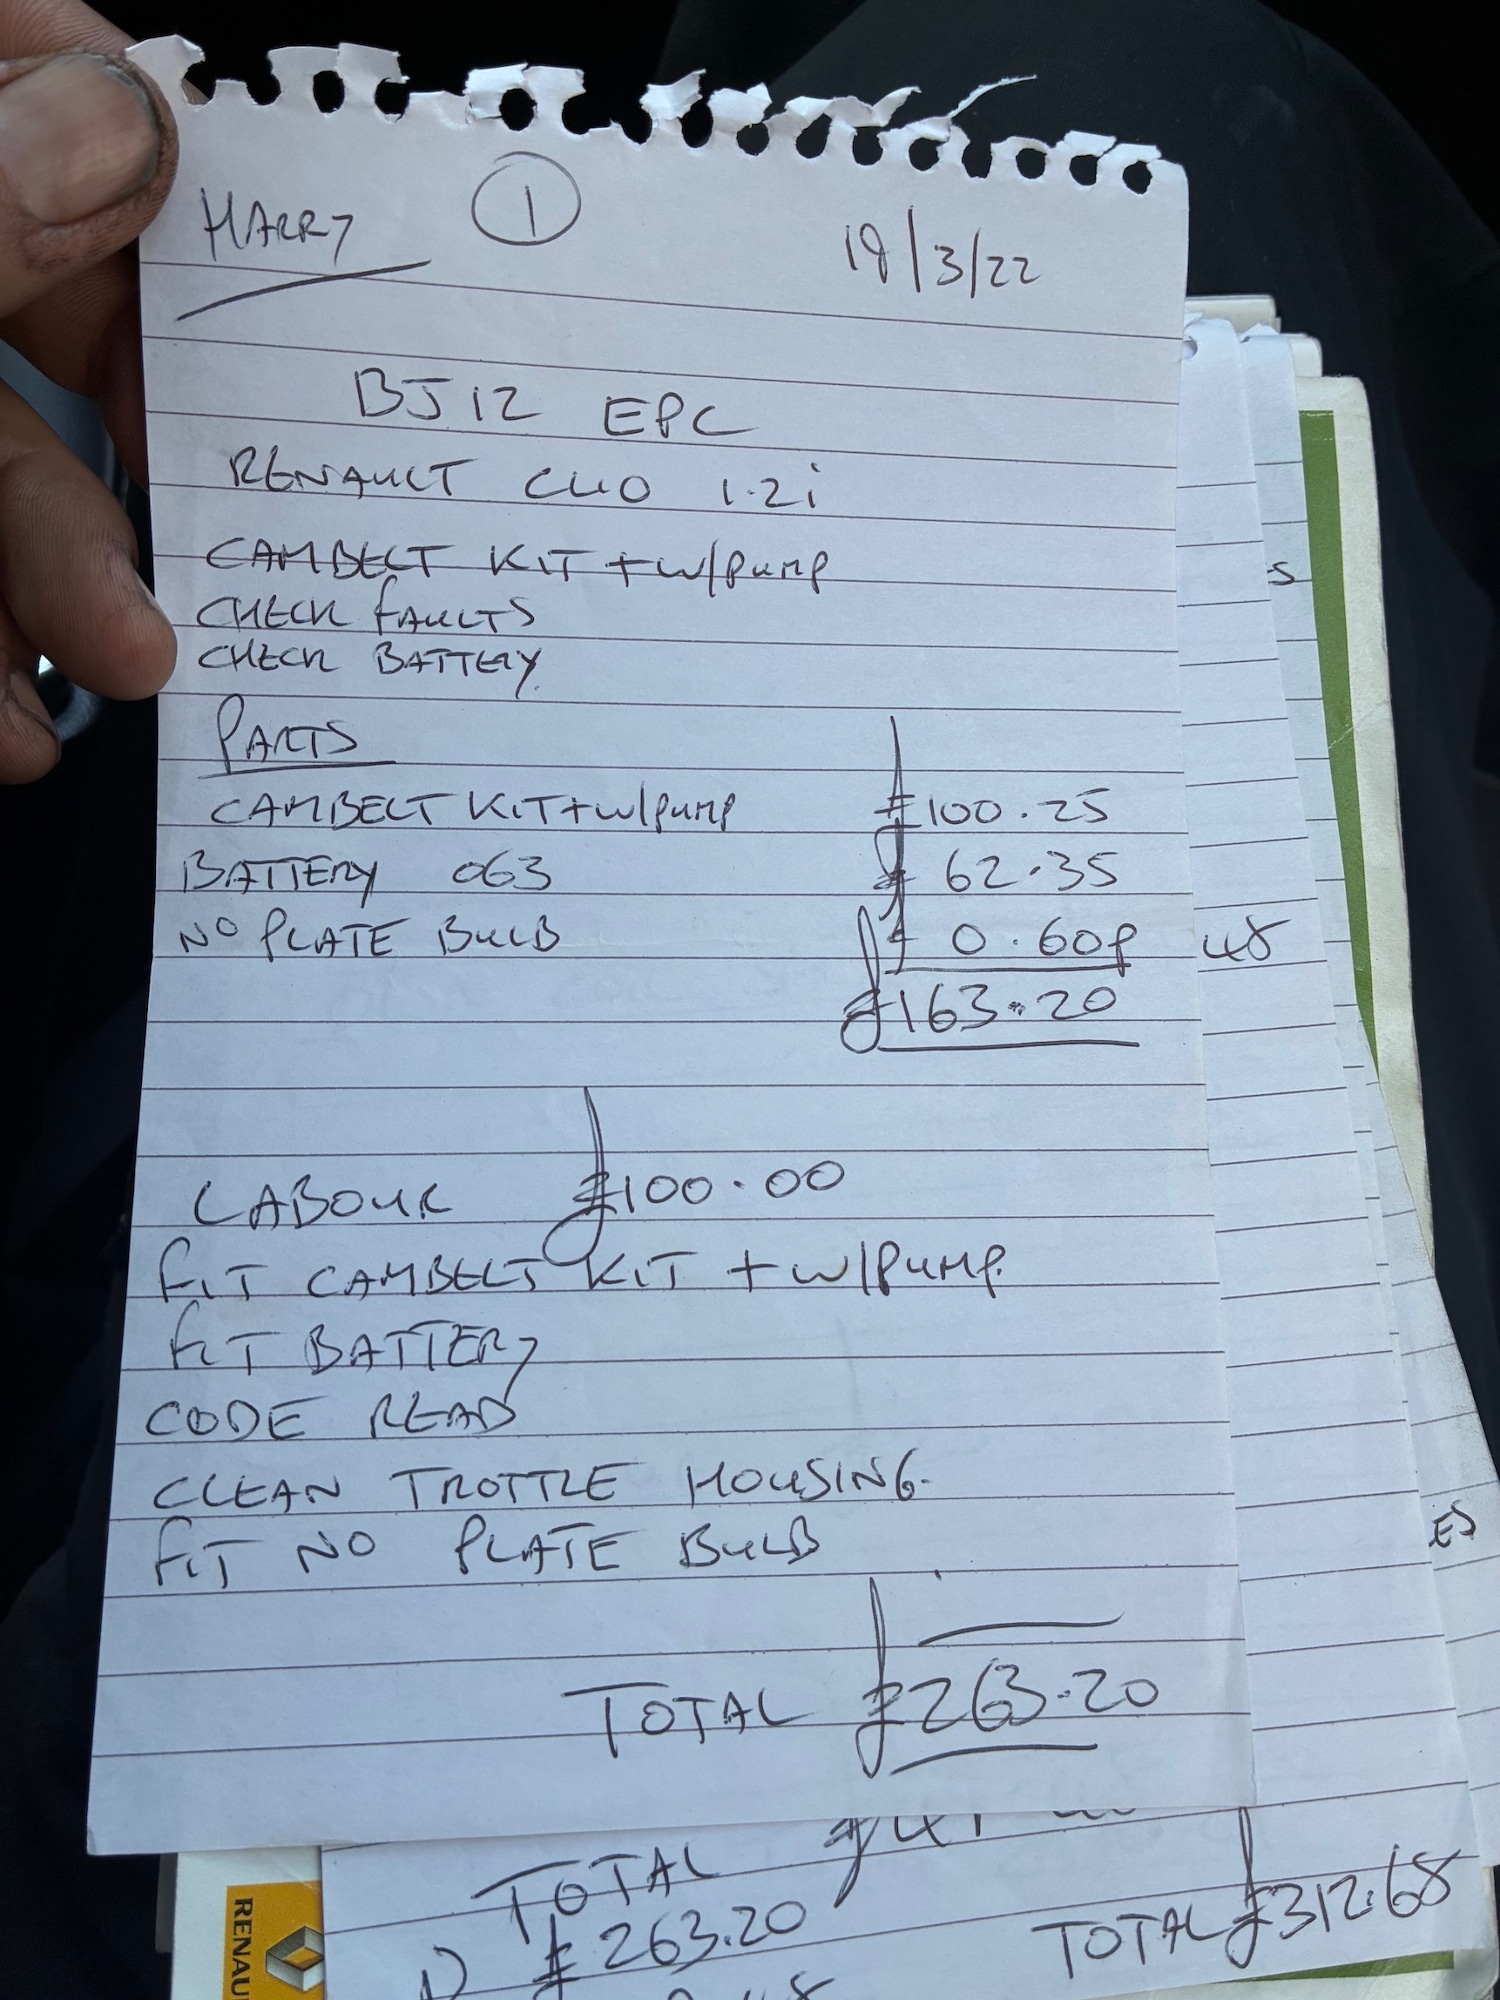 HARRY
1
19/3/22
BJ12 EPC
RENAULT CLIO 1.2i
CAMBELT KIT + W/PUMP
CHECK FAULTS
CHECK BATTERY.
PARTS
CAMBELT KIT + W/PUMP £100.25
BATTERY 063 £ 62.35
NO PLATE BULB £ 0.60p
£163.20
LABOUR £100.00
FIT CAMBELT KIT + W/PUMP.
FIT BATTERY
CODE READ
CLEAN TROTTLE HOUSING.
FIT NO PLATE BULB
TOTAL £263.20
S
48
ES
TOTAL
£263.20
TOTAL £312.68
RENAU